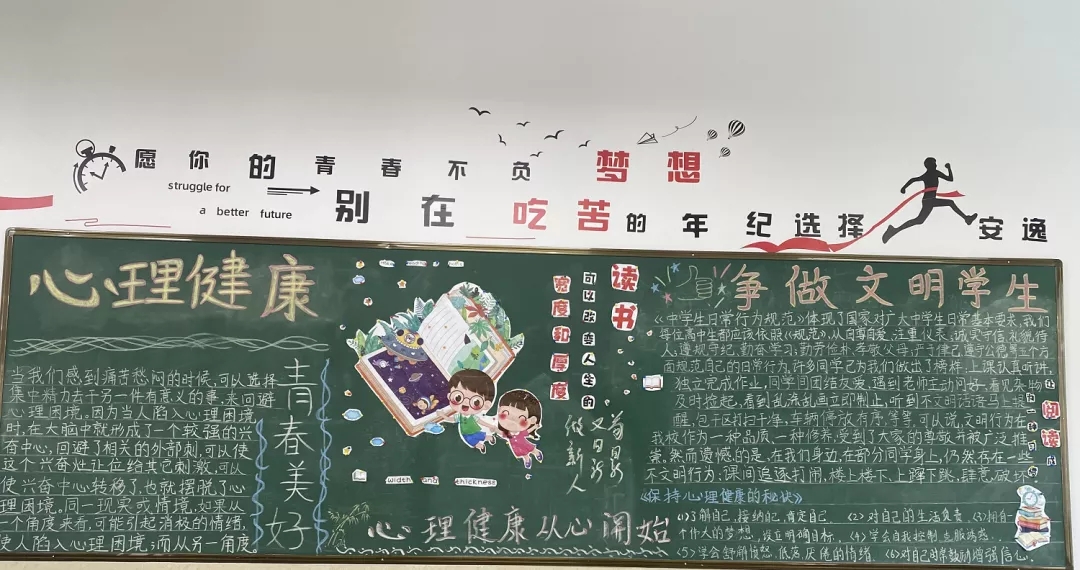 愿你的青春不负梦想
struggle for
a better future
别在吃苦的年纪选择安逸
心理健康
当我们感到痛苦愁闷的时候,可以选择
集中精力去干另一件有意义的事,来回避
心理困境。因为当人陷入心理困境
时,在大脑中就形成了一个较强的兴
奋中心,回避了相关的外部刺,可以使
这个兴奋灶让位给其它刺激,可以
使兴奋中心转移了,也就摆脱了心
理困境。同一现实或情境,如果从
一个角度来看,可能引起消极的情绪,
使人陷入心理困境;而从另一角度。
青春美好
读书
可以改变人生的
宽度和厚度
苟日新
又日新
做新人
width and thickness
心理健康从心开始
争做文明学生
《中学生日常行为规范》体现了国家对广大中学生日常基本要求,我们
每位高中生都应该依照《规范》,从自尊自爱,注重仪表,诚实守信,礼貌待
人,遵规守纪,勤奋学习,勤劳俭朴,孝敬父母,严于律己,遵守公德等五个方
面规范自己的日常行为,许多同学已为我们做出了榜样,上课认真听讲,
独立完成作业,同学间团结友爱,遇到老师主动问好,看见杂物
及时捡起,看到乱涂乱画立即制止,听到不文明话语马上提
醒,包干区打扫干净,车辆停放有序,等等,可以说,文明行为在
我校作为一种品质,一种修养,受到了大家的尊敬并被广泛推
崇。然而遗憾的是,在我们身边,在部分同学身上,仍然存在一些
不文明行为,课间追逐打闹,楼上楼下,上蹿下跳,肆意破坏
阅读
《保持心理健康的秘诀》
(1)了解自己,接纳自己,肯定自己 (2)对自己的生活负责 (3)拥有一
个个人的梦想,设立明确目标 (4)学会自我控制,克服诱惑
(5)学会舒解愤怒、低落、厌倦的情绪 (6)对自己时常鼓励增强信心